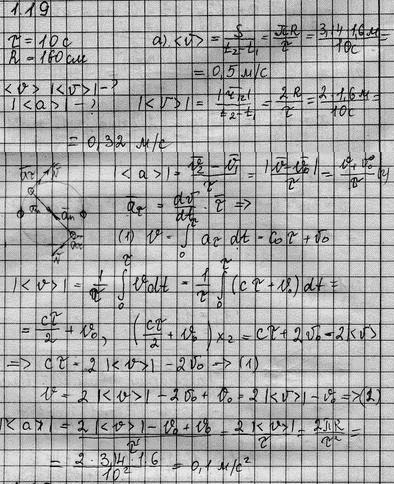 1.19
τ = 10 c
R = 160 см
<v> |<v>| - ?
|<a>| - ?
a) <v> = S/(t₂-t₁) = πR/τ = 3,14·1,6м/10c =
= 0,5 м/с
|<v̄>| = |r₁₂|/(t₂-t₁) = 2R/τ = 2·1,6м/10c =
= 0,32 м/с
|<a>| = (v̄₂ - v̄₁)/τ = |v̄ - v̄₀|/τ = (v + v₀)/τ (2)
ā_τ = dv/dt · τ̄ ⇒
(1) v = ∫₀^τ a_τ dt = cτ + v₀
|<v>| = 1/τ ∫₀^τ v dt = 1/τ ∫₀^τ (cτ + v₀) dt =
= cτ/2 + v₀, (cτ/2 + v₀) x 2 = cτ + 2v₀ = 2|<v>|
=> cτ = 2|<v>| - 2v₀ -> (1)
v = 2|<v>| - 2v₀ + v₀ = 2|<v>| - v₀ => (2)
|<a>| = (2|<v>| - v₀ + v₀)/τ = 2|<v>|/τ = 2πR/τ² =
= 2·3,14·1,6/10² = 0,1 м/с²